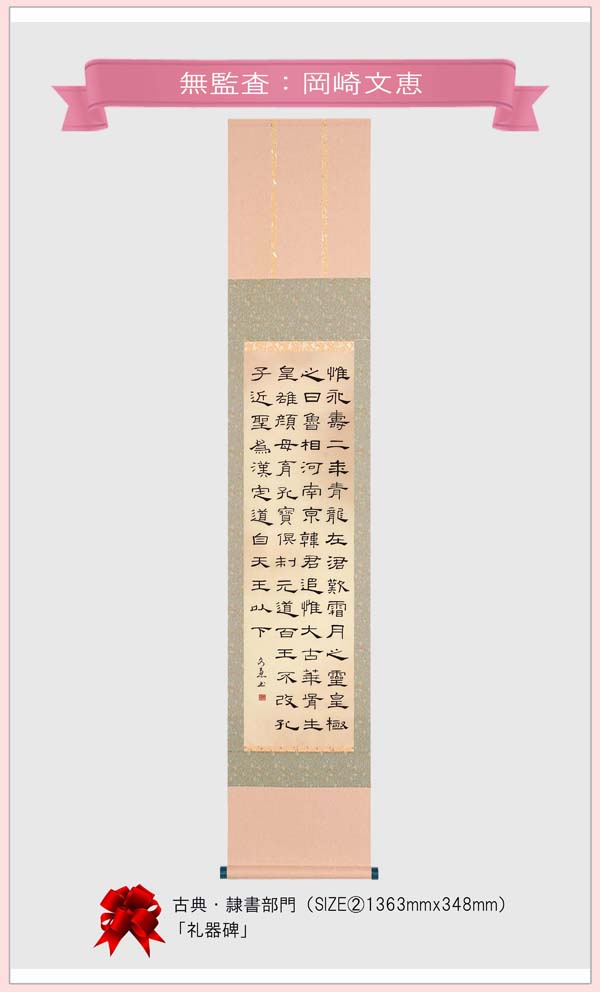 無監査：岡崎文恵
惟永壽二年青龍在涒歎霜月之靈皇極
之日魯相河南京韓君追惟大古華胥生
皇雄顏母育孔寶俱制元道百王不改孔
子近聖為漢定道自天王以下
文恵書
古典・隷書部門（SIZE②1363mmx348mm）
「礼器碑」